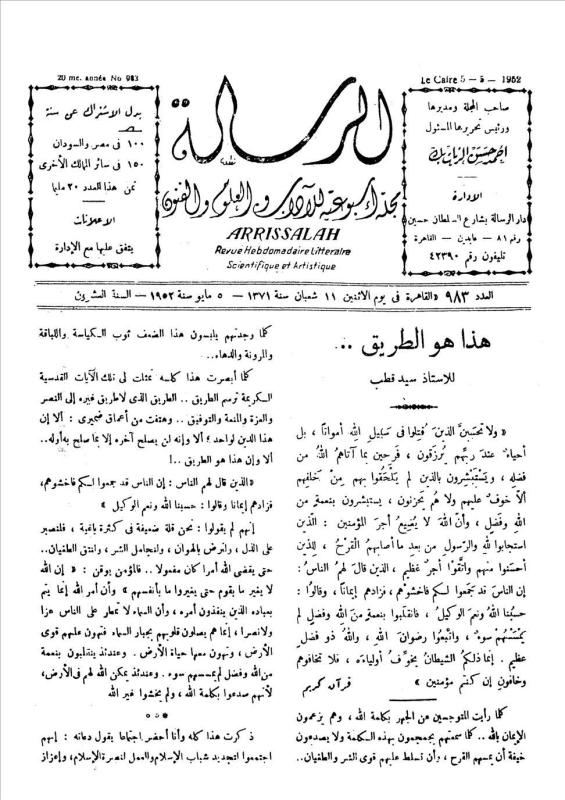 20 me. année No 983
Le Caire 5 - 5 - 1952
صاحب المجلة ومديرها
ورئيس تحريرها المسئول
احمد حسن الزيات بك
الإدارة
دار الرسالة بشارع السلطان حسين
رقم ٨١ - عابدين - القاهرة
تليفون رقم ٤٢٣٩٠
الرسالة
مجلة أسبوعية للآداب والعلوم والفنون
ARRISSALAH
Revue Hebdomadaire Litteraire
Scientifique et Artistique
بدل الاشتراك عن سنة
١٠٠ فى مصر والسودان
١٥٠ فى سائر الممالك الأخرى
ثمن هذا العدد ٢٠ مليما
الاعلانات
يتفق عليها مع الإدارة
العدد ٩٨٣ « القاهرة فى يوم الاثنين ١١ شعبان سنة ١٣٧١ - ٥ مايو سنة ١٩٥٢ - السنة العشرون
هذا هو الطريق ..
للاستاذ سيد قطب
« ولا تحسبن الذين قُتلوا فى سبيل الله أمواتاً ، بل
أحياء عند ربهم يُرزقون ، فرحين بما آتاهم الله من
فضله ، ويستبشرون بالذين لم يلحقوا بهم من خلفهم
ألا خوف عليهم ولا هم يحزنون ، يستبشرون بنعمة من
الله وفضل ، وأن الله لا يضيع أجر المؤمنين : الذين
استجابوا لله والرسول من بعد ما أصابهم القرح ، للذين
أحسنوا منهم واتقوا أجر عظيم ، الذين قال لهم الناس :
إن الناس قد جمعوا لكم فاخشوهم ، فزادهم إيمانا ، وقالوا :
حسبنا الله ونعم الوكيل ، فانقلبوا بنعمة من الله وفضل لم
يمسسهم سوء ، واتبعوا رضوان الله ، والله ذو فضل
عظيم . إنما ذلكم الشيطان يخوف أولياءه ، فلا تخافوهم
وخافون إن كنتم مؤمنين » قرآن كريم
كلما رأيت المتوجسين من الجهر بكلمة الله ، وهم يزعمون
الإيمان بالله .. كلما سمعتهم يجمجمون بهذه الكلمة ولا يصدعون
خيفة أن يمسهم القرح ، وأن تسلط عليهم قوى الشر والطغيان ..
كلما وجدتهم يلبسون هذا الضعف ثوب الكياسة واللباقة
والمرونة والدهاء ..
كلما أبصرت هذا كله تمثلت لى تلك الآيات القدسية
الكريمة ترسم الطريق .. الطريق الذى لا طريق غيره إلى النصر
والعزة والمنعة والتوفيق .. وهتفت من أعماق ضميرى : ألا إن
هذا الدين لواحد ؛ ألا وإنه لن يصلح آخره إلا بما صلح به أوله ..
ألا وإن هذا هو الطريق ..!
« الذين قال لهم الناس : إن الناس قد جمعوا لكم فاخشوهم ،
فزادهم إيمانا وقالوا : حسبنا الله ونعم الوكيل »
إنهم لم يقولوا : نحن قلة ضعيفة فى كثرة باغية ، فلنصبر
على الذل ، ولنرض بالهوان ، ولنجامل الشر ، ولنتق الطغيان ..
حتى يقضى الله أمرا كان مفعولا .. فالمؤمن يوقن : « إن الله
لا يغير ما بقوم حتى يغيروا ما بأنفسهم » وأن أمر الله إنما يتم
بعباده الذين ينفذون أمره ، وأن السماء لا تمطر على الناس عزا
ولا نصرا ، إنما هم يصلون قلوبهم بجبار السماء فتهون عليهم قوى
الأرض ، وتهون معها حياة الأرض . وعندئذ ينقلبون بنعمة
من الله وفضل لم يمسسهم سوء . وعندئذ يمكن الله لهم فى الأرض ،
لأنهم صدعوا بكلمة الله ، ولم يخشوا غير الله
ذكرت هذا كله وأنا أحضر اجتماعا يقول دعاته : إنهم
اجتمعوا لتجديد شباب الإسلام والعمل لنصرة الإسلام ، وإعزاز